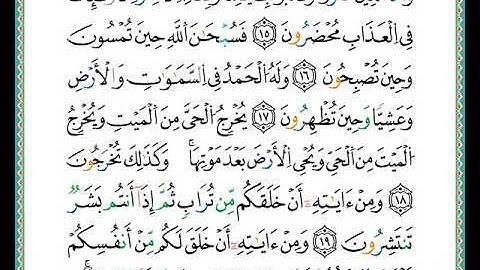 فِي ٱلۡعَذَابِ مُحۡضَرُونَ ١٥ فَسُبۡحَٰنَ ٱللَّهِ حِينَ تُمۡسُونَ
وَحِينَ تُصۡبِحُونَ ١٦ وَلَهُ ٱلۡحَمۡدُ فِي ٱلسَّمَٰوَٰتِ وَٱلۡأَرۡضِ
وَعَشِيّٗا وَحِينَ تُظۡهِرُونَ ١٧ يُخۡرِجُ ٱلۡحَيَّ مِنَ ٱلۡمَيِّتِ وَيُخۡرِجُ
ٱلۡمَيِّتَ مِنَ ٱلۡحَيِّ وَيُحۡيِ ٱلۡأَرۡضَ بَعۡدَ مَوۡتِهَاۚ وَكَذَٰلِكَ تُخۡرَجُونَ
١٨ وَمِنۡ ءَايَٰتِهِۦٓ أَنۡ خَلَقَكُم مِّن تُرَابٖ ثُمَّ إِذَآ أَنتُم بَشَرٞ
تَنتَشِرُونَ ١٩ وَمِنۡ ءَايَٰتِهِۦٓ أَنۡ خَلَقَ لَكُم مِّنۡ أَنفُسِكُمۡ